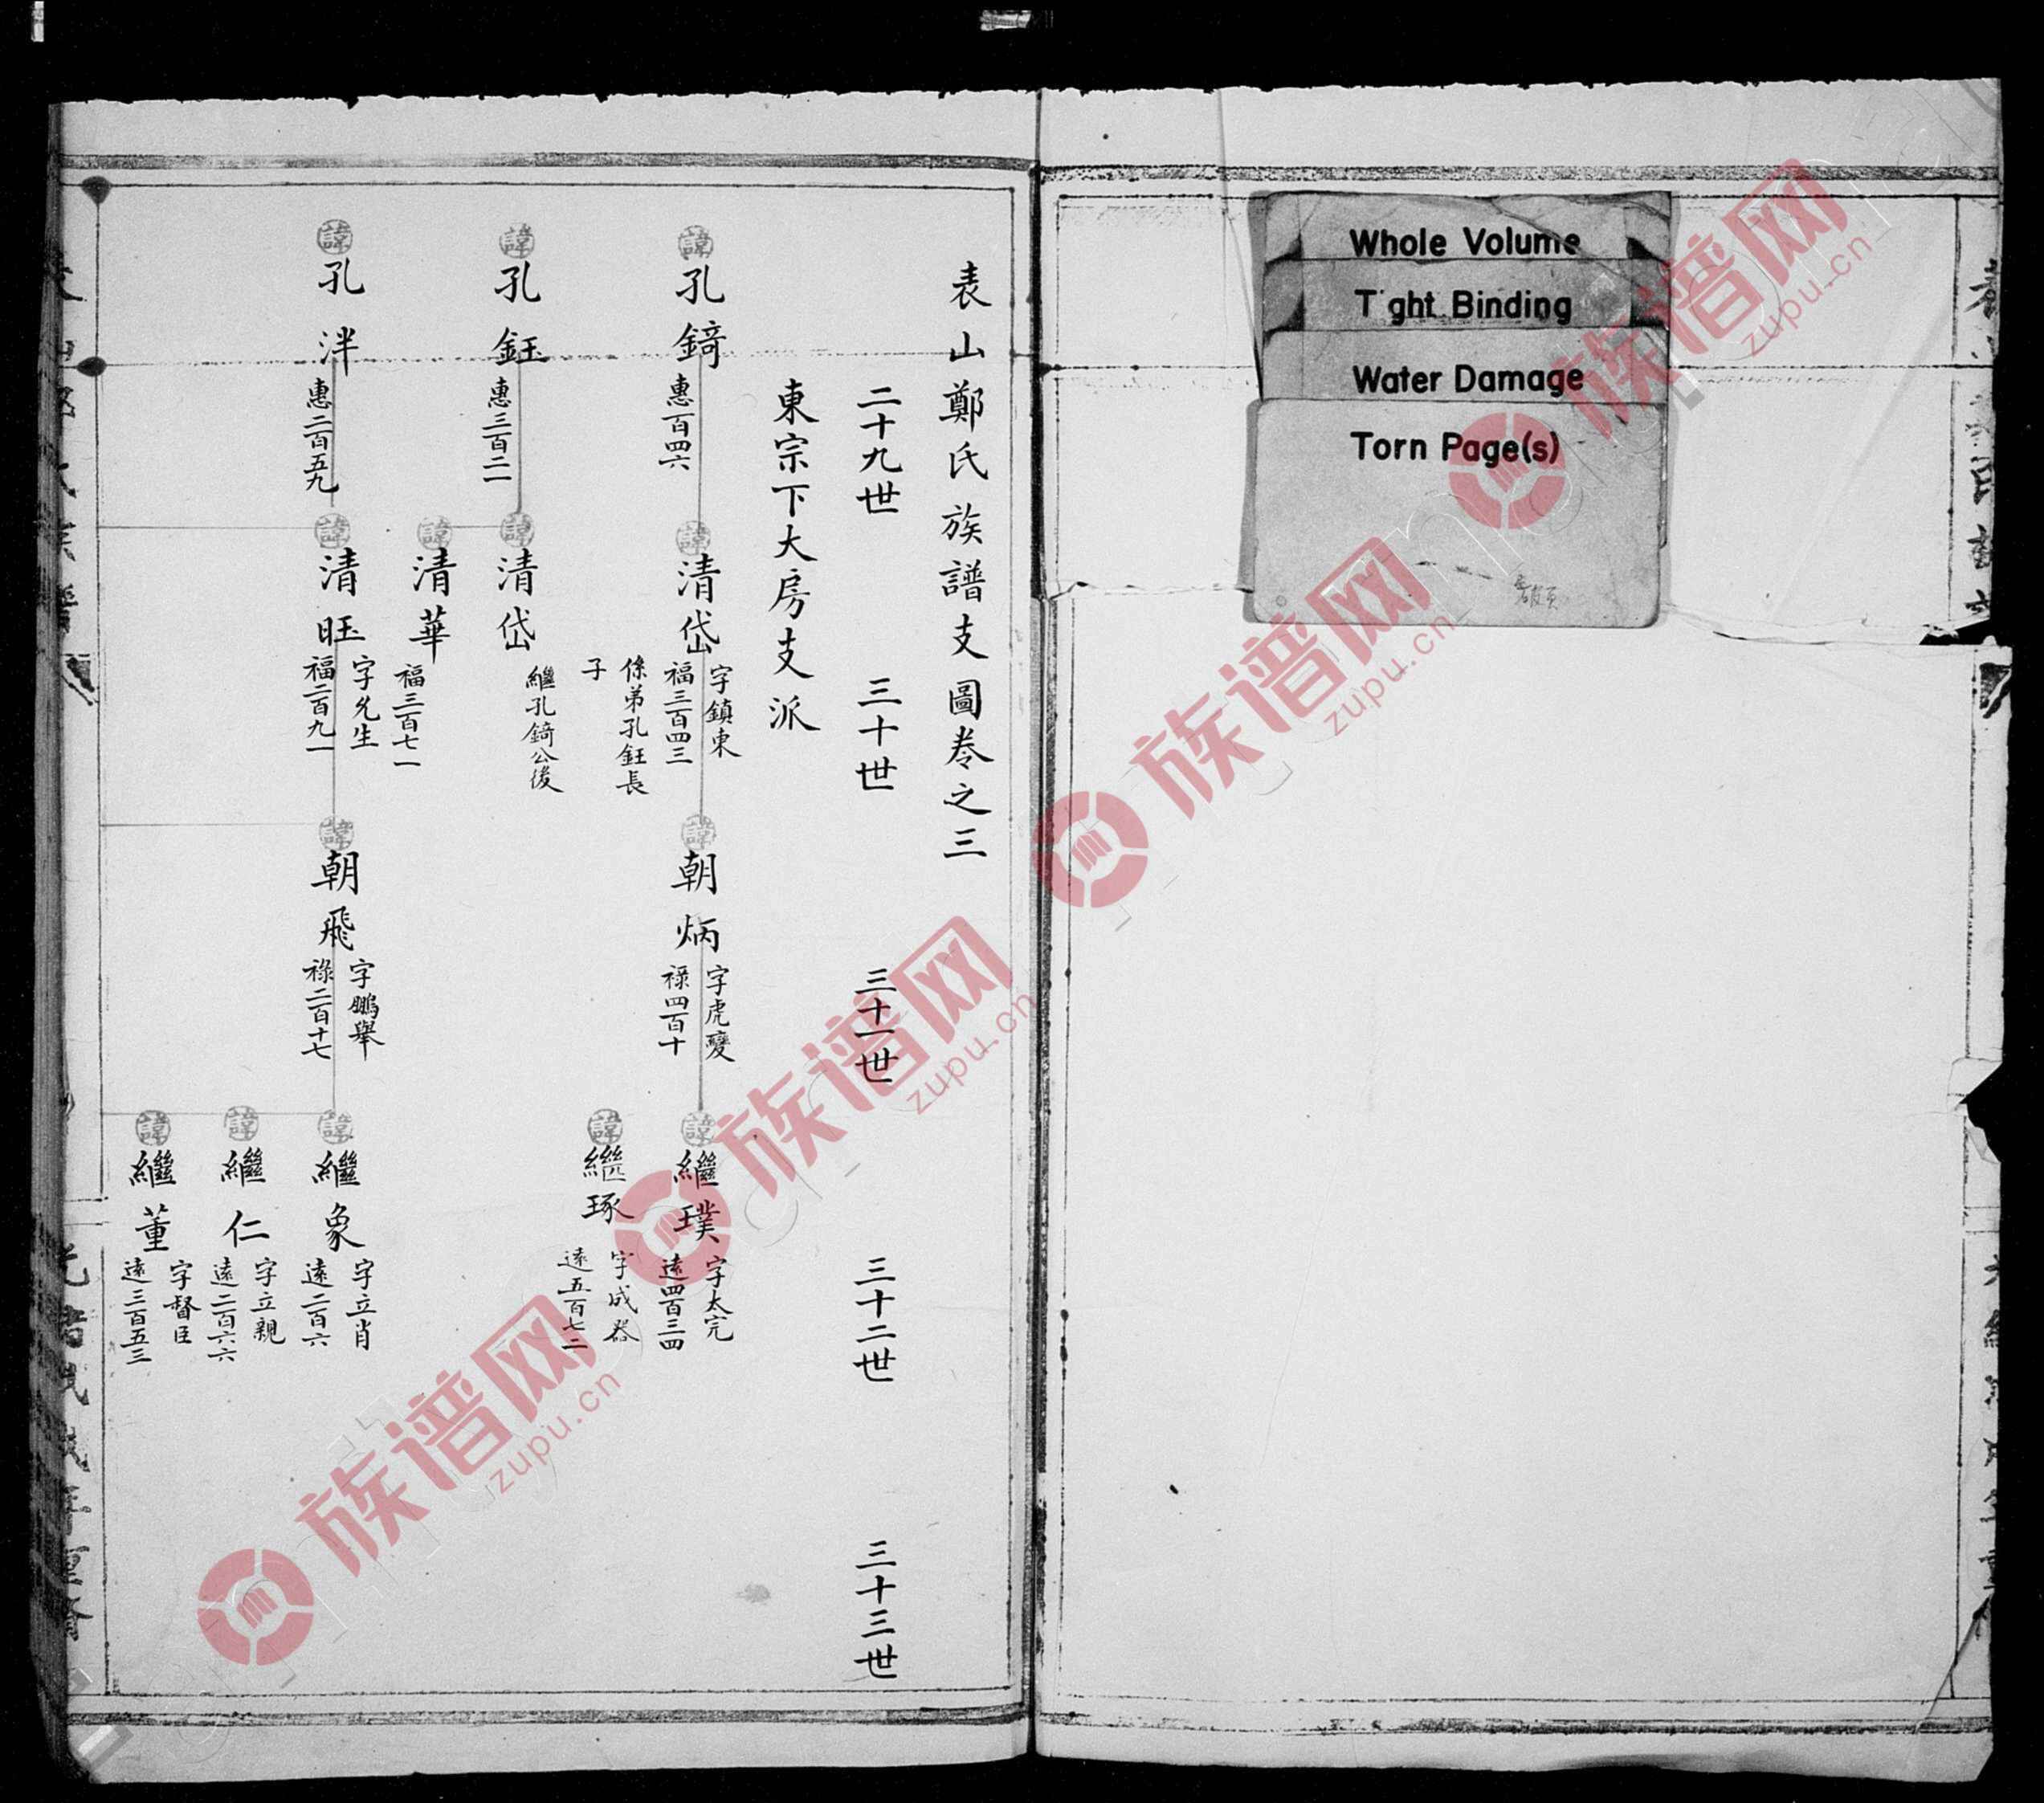 Whole Volume
Tight Binding
Water Damage
Torn Page(s)
表山鄭氏族譜支圖卷之三
二十九世 三十世 三十一世 三十二世 三十三世
東宗下大房支派
諱 孔錡 惠一百四六
諱 清岱 字鎮東 福三百四三 係弟孔鈺長子
諱 朝炳 字虎變 祿四百十
諱 繼璞 字太完 遠四百三四
諱 繼琢 字成器 遠五百七二
諱 孔鈺 惠三百二一
諱 清岱 繼孔錡公後
諱 清華 福三百七一
諱 孔泮 惠二百五九
諱 清旺 字允生 福二百九一
諱 朝飛 字鵬舉 祿二百十七
諱 繼象 字立肖 遠二百六
諱 繼仁 字立親 遠二百六六
諱 繼董 字督臣 遠三百五三
族谱网
zupu.cn
族谱网
zupu.cn
族谱网
zupu.cn
族谱网
zupu.cn